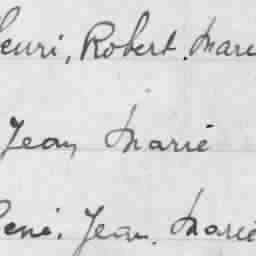 Henri, Robert. Marie
Jean Marie
René. Jean. Marie